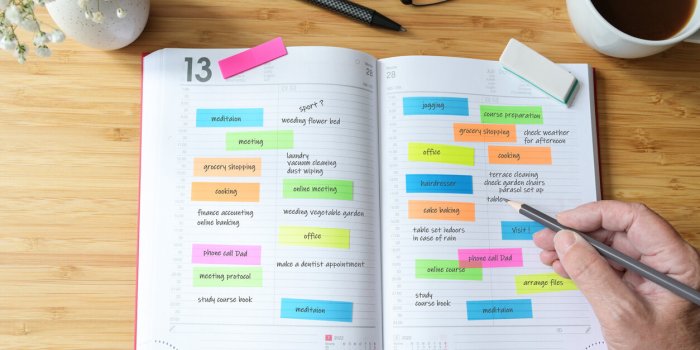 13
28
28
meditaion
sport ?
weeding flower bed
meeting
grocery shopping
laundry
vacuum cleaning
dust wiping
cooking
online meeting
finance accounting
online banking
weeding vegetable garden
office
phone call Dad
make a dentist appointment
meeting protocol
study course book
meditaion
2022
jogging
course preparation
grocery shopping
check weather
for afternoon
office
cooking
terrace cleaning
check garden chairs
parasol set up
hairdresser
table
cake baking
table set indoors
in case of rain
Visit !
phone call Dad
online course
arrange files
study
course book
meditaion
2022